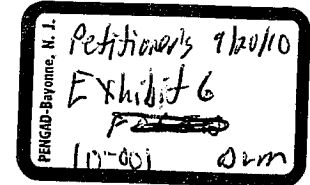 PENGAD-Bayonne, N. J.
Petitioner's 9/20/10
Exhibit 6
10-001